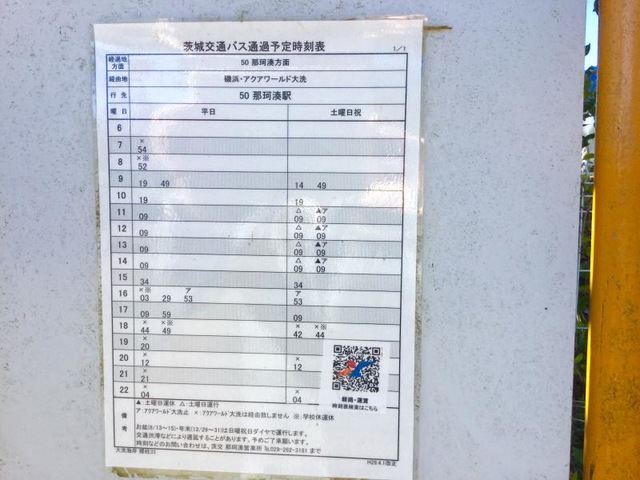 茨城交通バス通過予定時刻表
1/1
経過地方面 50 那珂湊方面
経由地 磯浜・アクアワールド大洗
行先 50 那珂湊駅
曜日 平日 土曜日祝
6
7 ×54
8 ×※52
9 19 49 14 49
10 19 19
11 09 △09 ▲ア09
12 09 △09 ▲ア09
13 09 △09 ▲ア09
14 09 △09 ▲ア09
15 34 34
16 ×※03 29 ア53 ア53
17 09 59 09
18 ×44 ×※49 ×42 ×※44
19 ×20
20 ×12 ×12
21 ×21
22 ×04 ×04
経路・運賃
時刻表検索はこちら
備考
▲:土曜日運休 △:土曜日運行
ア:アクアワールド大洗止 ×:アクアワールド大洗は経由致しません ※:学校休運休
お盆(8/13~15)・年末(12/29~31)は日曜祝日ダイヤで運行します。
交通渋滞などにより遅延することがあります。予めご了承願います。
時刻などのお問い合わせは、茨交 那珂湊営業所 ℡029-262-3181 まで
H29.4.1改正